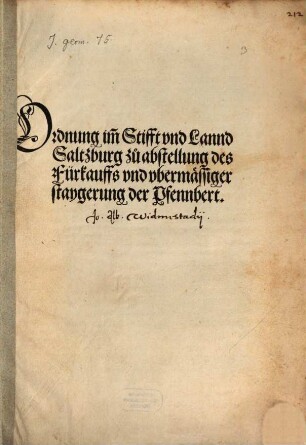 J. germ. 15
212
Ordnung im̃ Stifft vnd Lannd
Saltzburg zů abstellung des
Fürkauffs vnd vbermässiger
staygerung der Pfennbert.
Jo. Alb. Widmstadij.